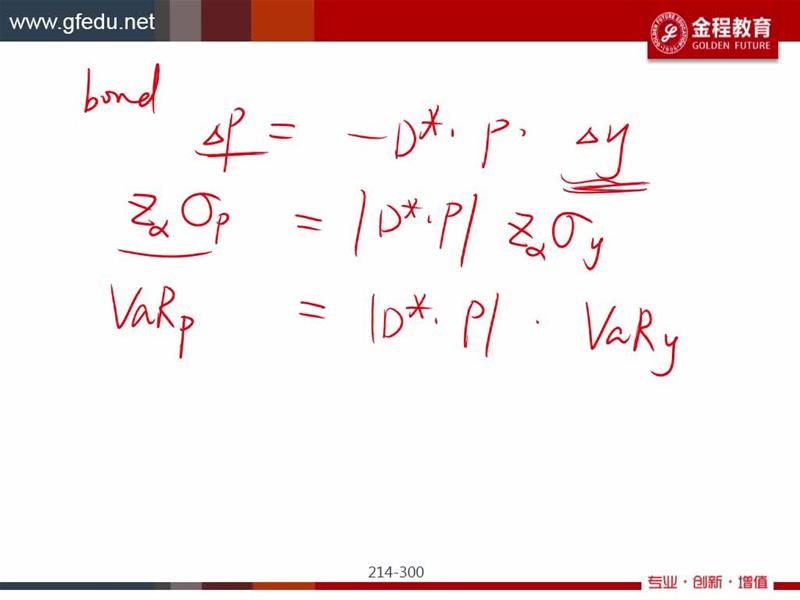 www.gfedu.net
金程教育
GOLDEN FUTURE
bond
ΔP = −D*· P· Δy
zασP = |D*·P| zασy
VaRP = |D*· P| · VaRy
214-300
专业·创新·增值